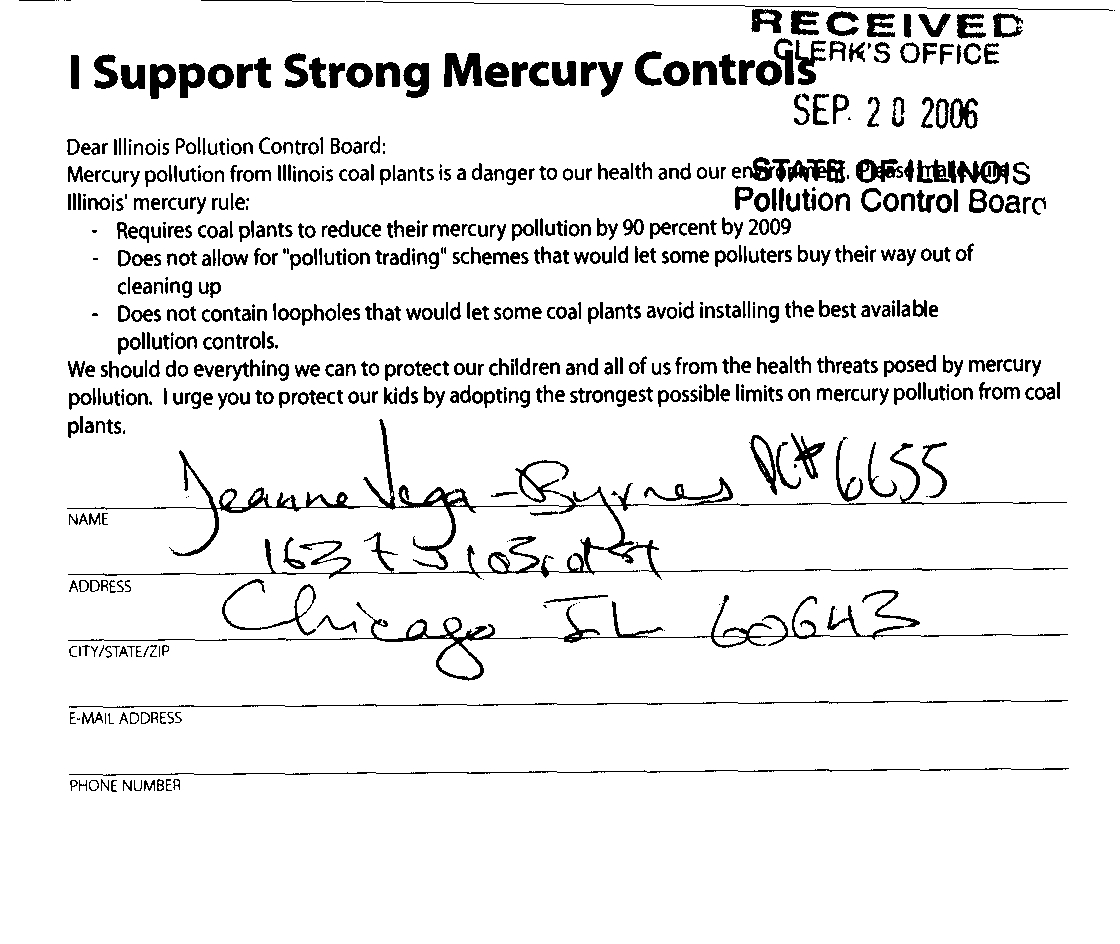 RECEIVED
CLERK'S OFFICE
I Support Strong Mercury Controls
SEP 20 2006
Dear Illinois Pollution Control Board:
Mercury pollution from Illinois coal plants is a danger to our health and our environment. Please make sure
STATE OF ILLINOIS
Pollution Control Board
Illinois' mercury rule:
- Requires coal plants to reduce their mercury pollution by 90 percent by 2009
- Does not allow for "pollution trading" schemes that would let some polluters buy their way out of
cleaning up
- Does not contain loopholes that would let some coal plants avoid installing the best available
pollution controls.
We should do everything we can to protect our children and all of us from the health threats posed by mercury
pollution. I urge you to protect our kids by adopting the strongest possible limits on mercury pollution from coal
plants.
Jeanne Vega-Byrnes PC# 6655
NAME
103rd St
ADDRESS
Chicago IL 60643
CITY/STATE/ZIP
E-MAIL ADDRESS
PHONE NUMBER